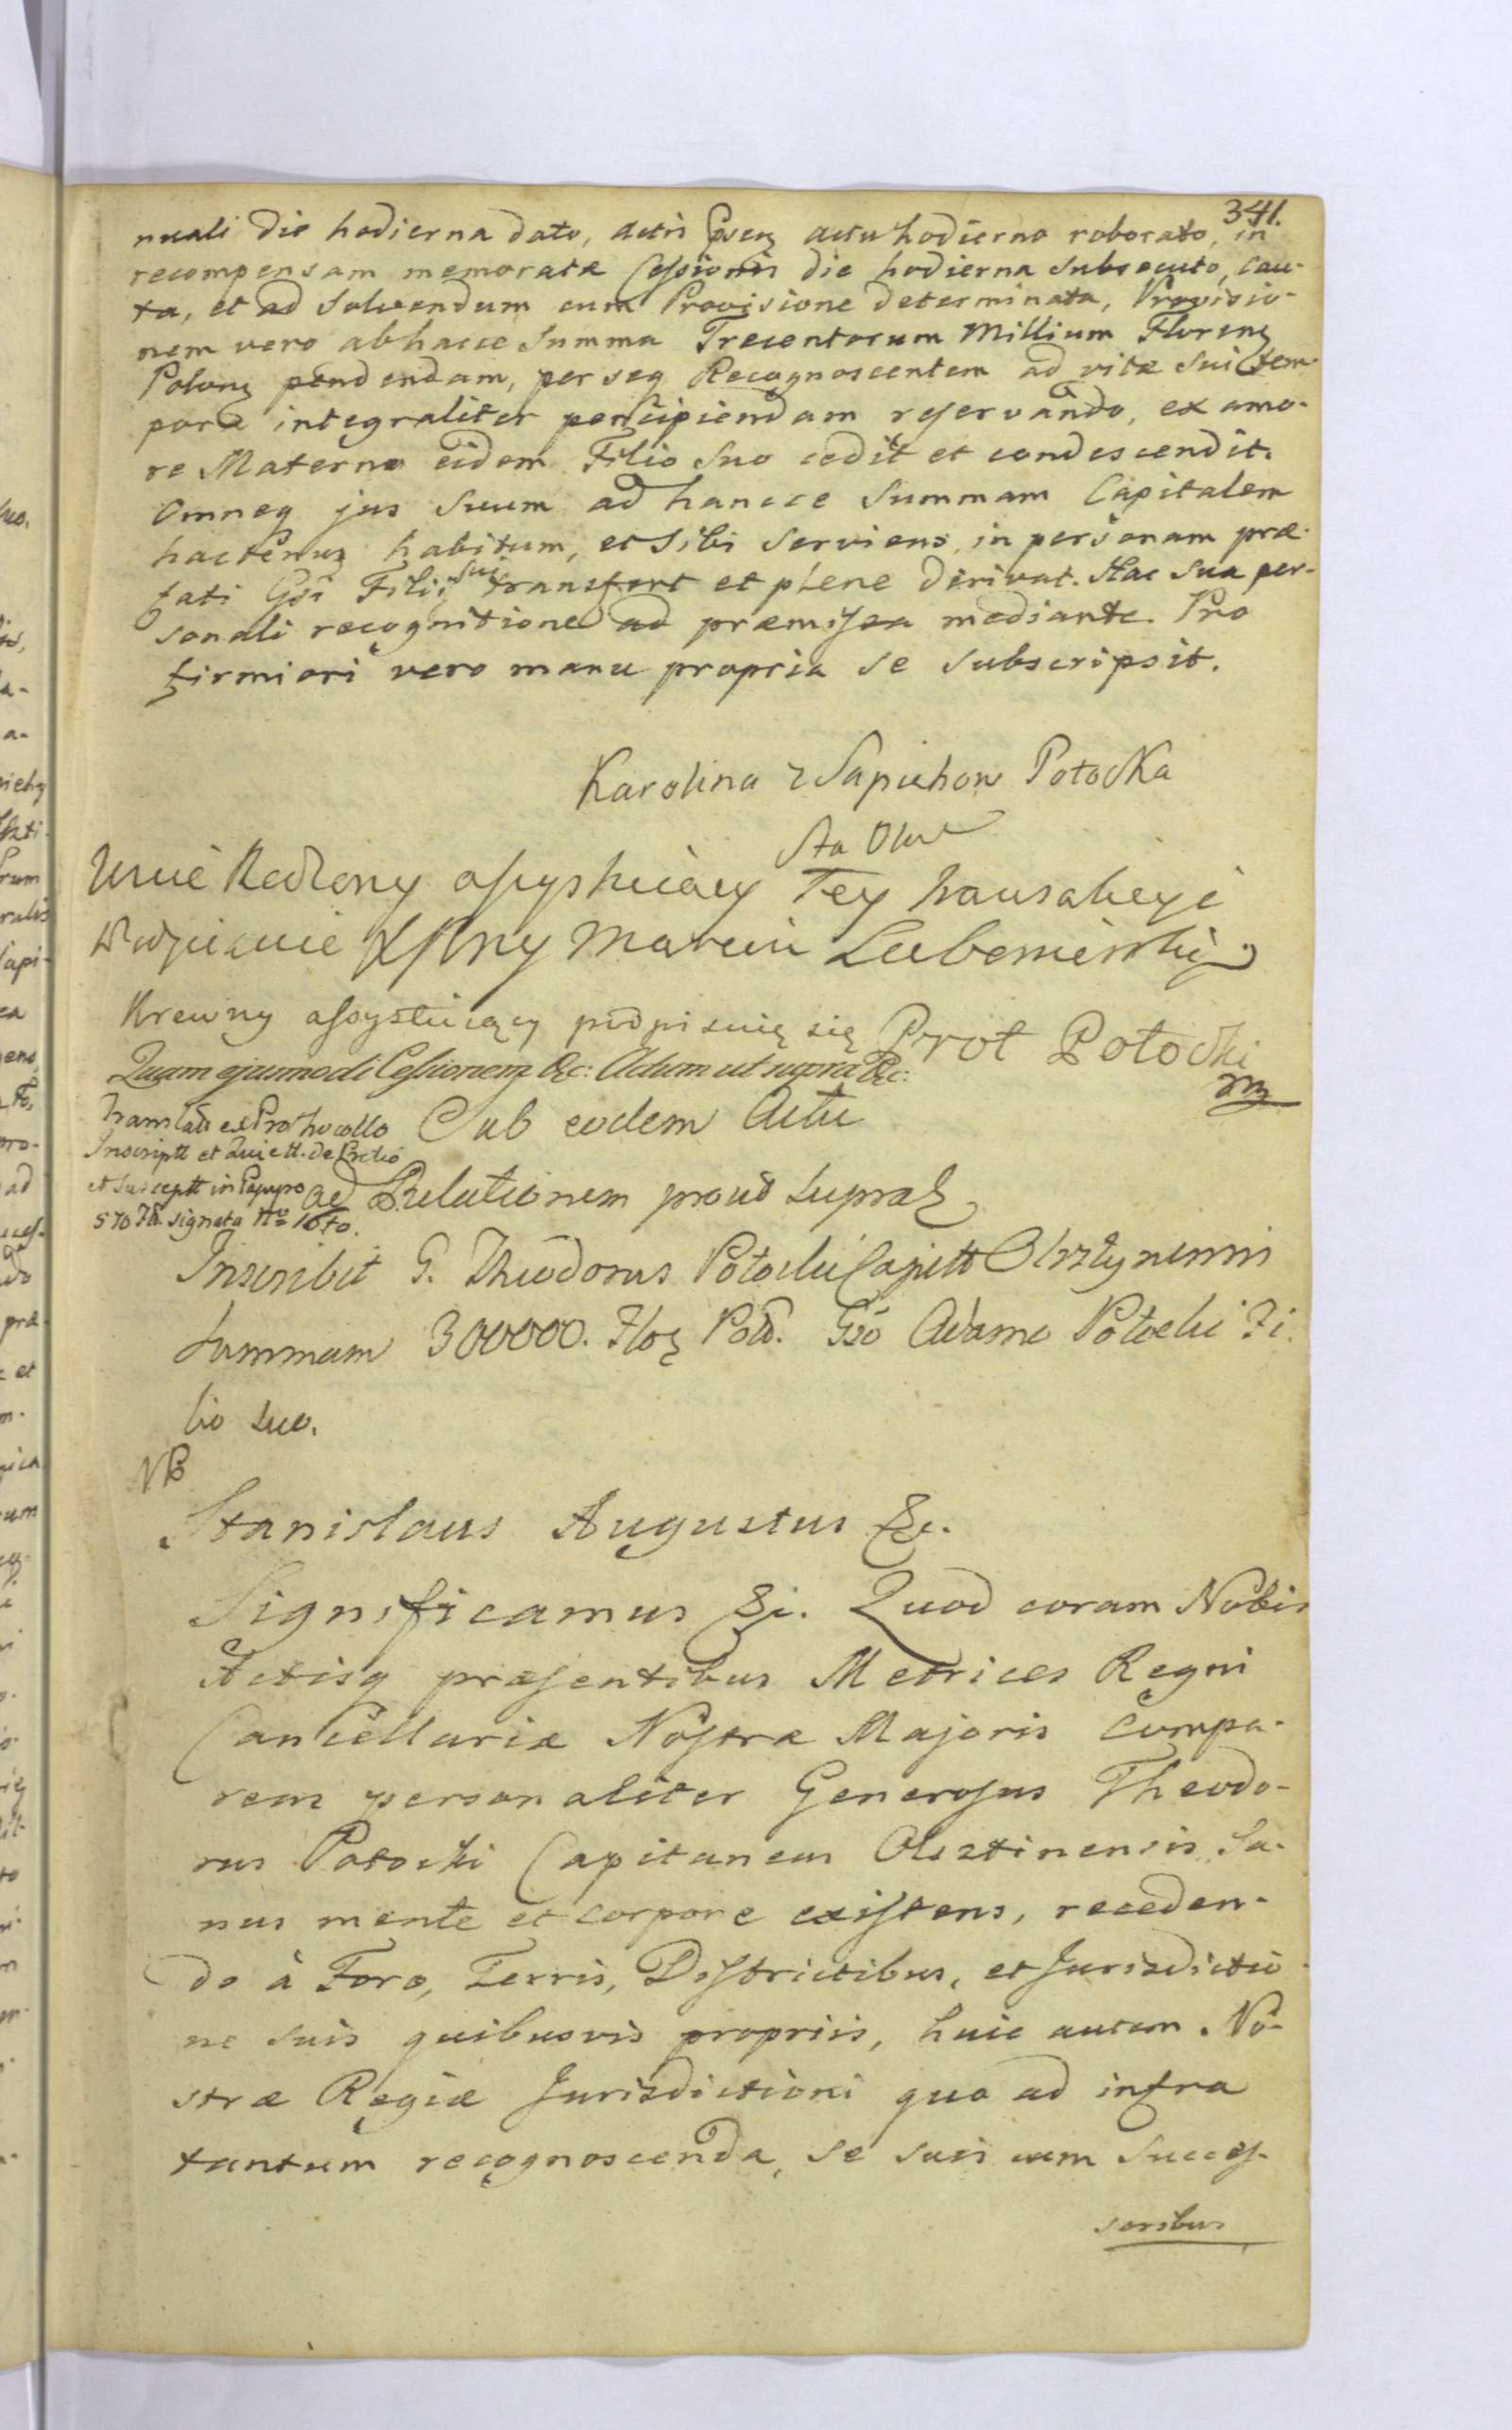 341.
nuali die hodierna dato, actis actu hodierno roborato, in
recompensam memoratæ Cessionis die hodierna subsecuto, cau-
ta, et ad solvendum cum Provisione determinata, Provisio-
nem vero ab hacce Summa Trecentorum Millium Floreng
Polong pendendam, per seq Recognoscentem ad vitæ sui tem-
pora integraliter percipiendam reservando, ex amo-
re Materno eidem Filio suo cedit et condescendit.
Omneq jus suum ad hancce Summam Capitalem
hactenus habitum, et sibi serviens, in personam præ-
fati Gsi Filii sui transfert et plene derivat. Hac sua per-
sonali recognitione ad præmissa mediante. Pro
firmiori vero manu propria se subscripsit.
Karolina z Sapiehow Potocka
Sta Olsz
Rodzony assystuiący Tey transakcyi
Xże Marcin Lubomirski
Krewny assystuiący podpisuię się Prot Potocki
mp
Quam ejusmodi Cessionem &c: Actum ut supra &c:
Sub eodem Actu
Translati ex Prothocollo
Inscriptt et Quiett. de
et susceptt in Papyro
signata Nro
ad Relationem prout supra
Inscribit G. Theodorus Potocki Capitt Olsztynensis
Summam 300000. Flog Pol. Gso Adamo Potocki Fi-
lio suo.
NB
Stanislaus Augustus &c.
Significamus &c. Quod coram Nobis
Actisq præsentibus Metrices Regni
Cancellariæ Nostræ Majoris compa-
rens personaliter Generosus Theodo-
rus Potocki Capitaneus Olsztinensis Sa-
nus mente et corpore existens, receden-
do à Foro, Terris, Districtibus, et Jurisdictio-
ne suis quibusvis propriis, huic autem No-
stræ Regiæ Jurisdictioni quo ad infra
tantum recognoscenda, se suis cum Succes-
soribus